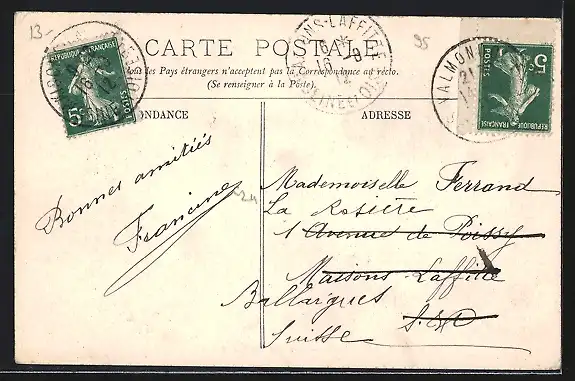 13
95
CARTE POSTALE
Tous les Pays étrangers n'acceptent pas la Correspondance au recto.
(Se renseigner à la Poste).
ONDANCE
ADRESSE
5c
POSTES
RÉPUBLIQUE FRANÇAISE
5c
POSTES
RÉPUBLIQUE FRANÇAISE
MAISONS-LAFFITTE
16
SEINE-ET-OISE
VALMON
21
Bonnes amitiés
Francine
Mademoiselle Ferrand
La Rosière
1 Avenue de Poissy
Maisons-Laffitte
Ballaigues
S.&O
Suisse